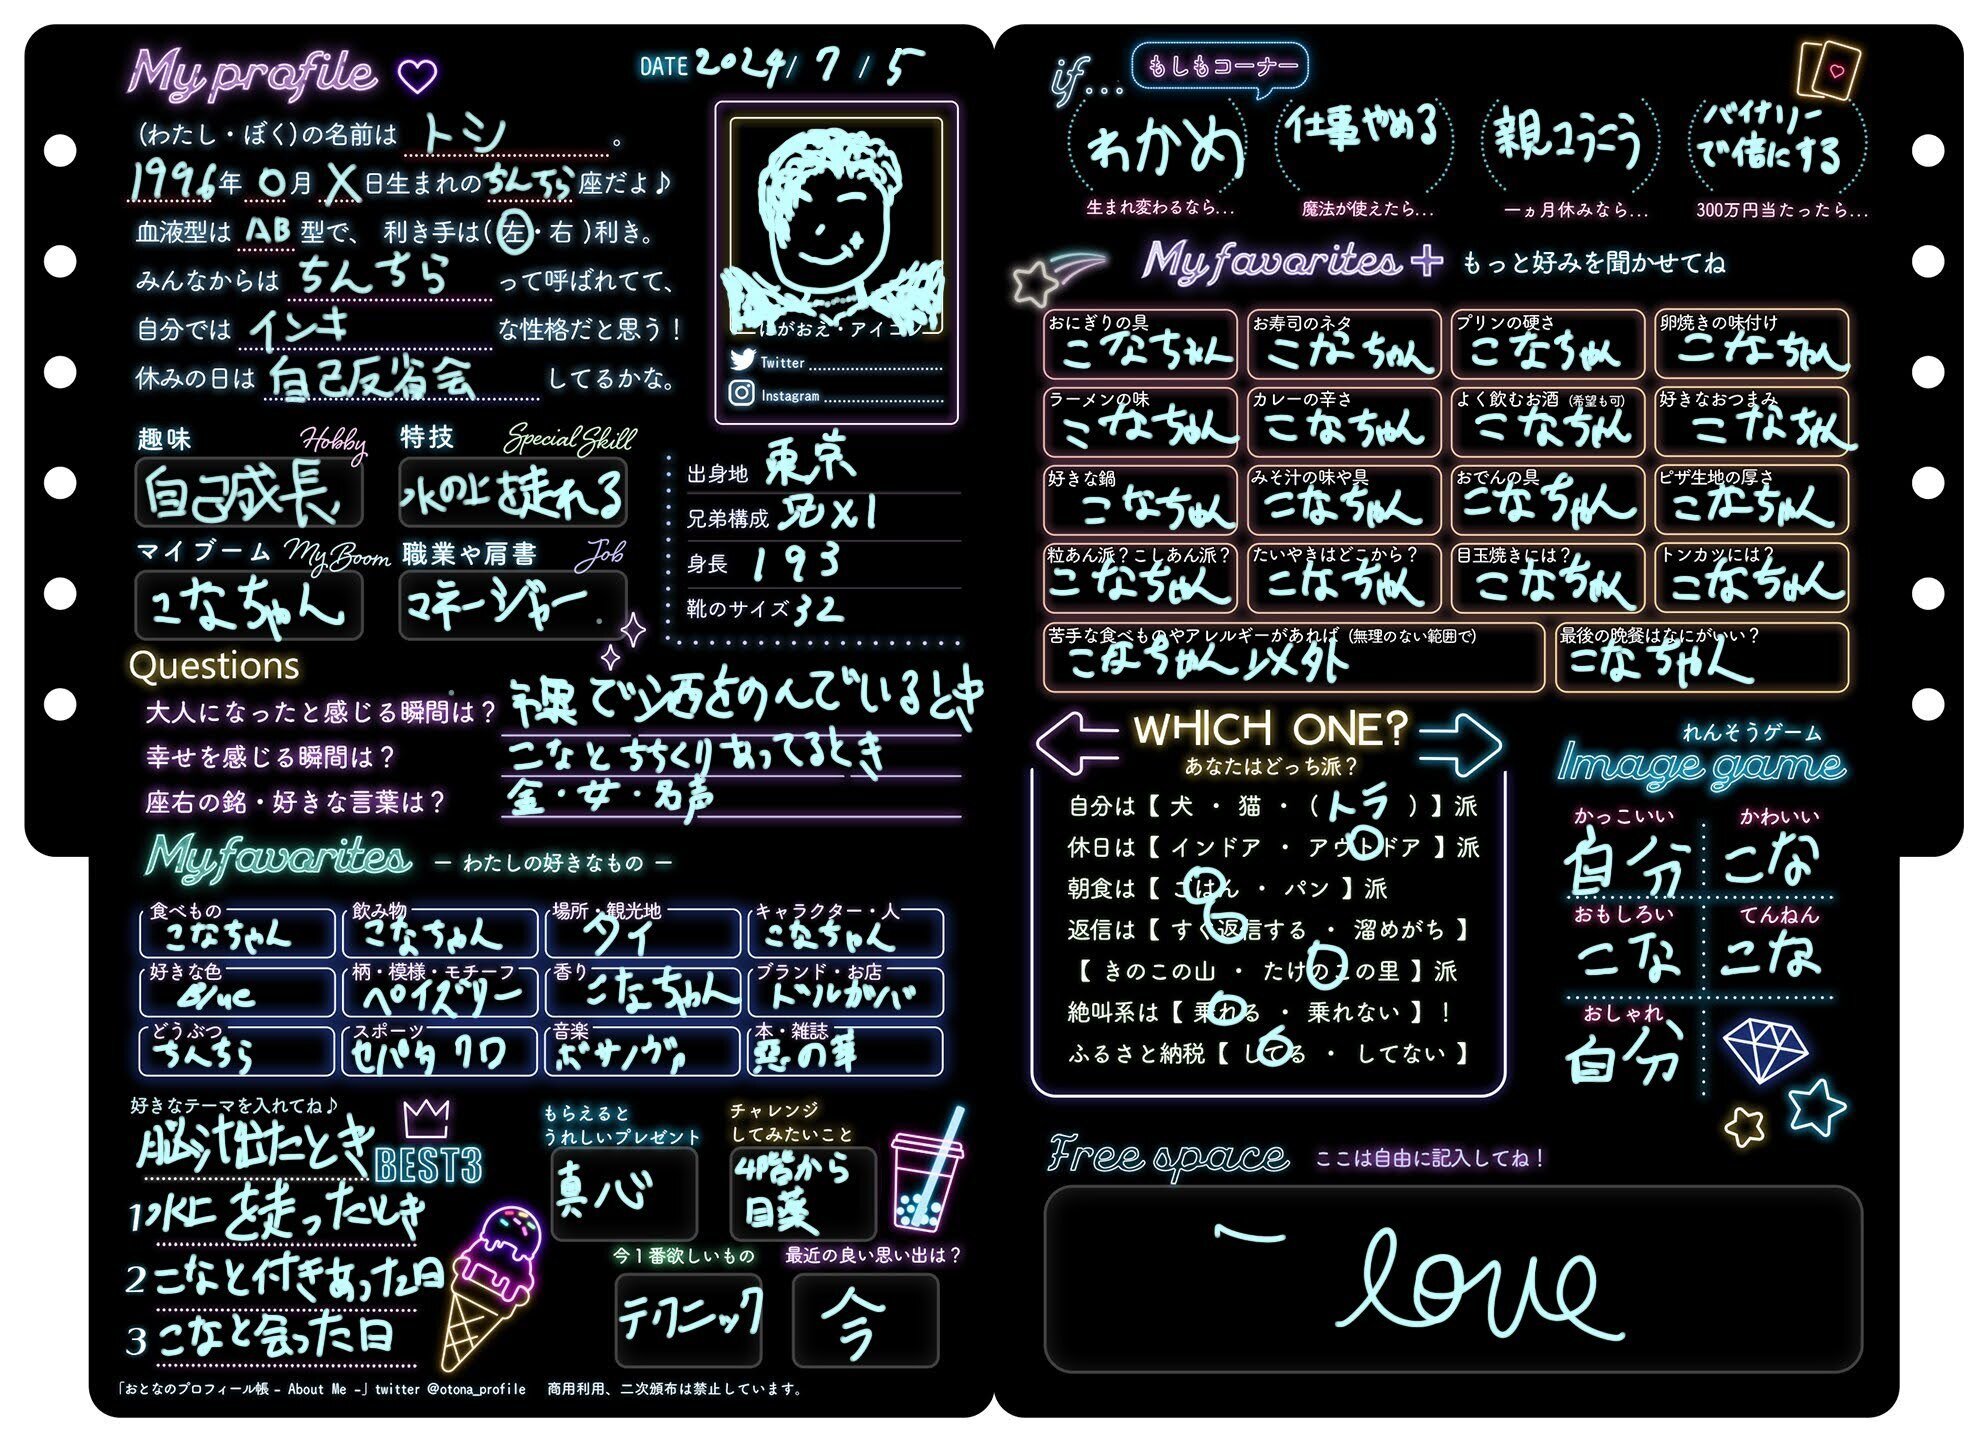 My profile
DATE 2024/ 7 / 5
(わたし・ぼく)の名前は トシ 。
1996年 0月 X日生まれのちんちら座だよ♪
血液型は AB 型で、 利き手は(左・右)利き。
みんなからは ちんちら って呼ばれてて、
自分では インキ な性格だと思う！
休みの日は 自己反省会 してるかな。
にがおえ・アイコン
Twitter
Instagram
趣味 Hobby
自己成長
特技 Special Skill
水の上を走れる
マイブーム My Boom
こなちゃん
職業や肩書 Job
マネージャー
出身地 東京
兄弟構成 兄X1
身長 193
靴のサイズ 32
Questions
大人になったと感じる瞬間は？ 裸で酒をのんでいるとき
幸せを感じる瞬間は？ こなとちちくりあってるとき
座右の銘・好きな言葉は？ 金・女・名声
My favorites － わたしの好きなもの －
食べもの こなちゃん
飲み物 こなちゃん
場所・観光地 タイ
キャラクター・人 こなちゃん
好きな色 Blue
柄・模様・モチーフ ペイズリー
香り こなちゃん
ブランド・お店 ドルガバ
どうぶつ ちんちら
スポーツ セパタクロ
音楽 ボサノヴァ
本・雑誌 悪の華
好きなテーマを入れてね♪
脳汁出たとき
BEST3
1 水上を走ったとき
2 こなと付きあった日
3 こなと会った日
もらえると
うれしいプレゼント
真心
チャレンジ
してみたいこと
4階から
目薬
今１番欲しいもの
テクニック
最近の良い思い出は？
今
「おとなのプロフィール帳 - About Me -」twitter @otona_profile 商用利用、二次頒布は禁止しています。
if... もしもコーナー
わかめ
生まれ変わるなら...
仕事やめる
魔法が使えたら...
親コうこう
一ヵ月休みなら...
バイナリー
で倍にする
300万円当たったら...
My favorites + もっと好みを聞かせてね
おにぎりの具 こなちゃん
お寿司のネタ こなちゃん
プリンの硬さ こなちゃん
卵焼きの味付け こなちゃん
ラーメンの味 こなちゃん
カレーの辛さ こなちゃん
よく飲むお酒 (希望も可) こなちゃん
好きなおつまみ こなちゃん
好きな鍋 こなちゃん
みそ汁の味や具 こなちゃん
おでんの具 こなちゃん
ピザ生地の厚さ こなちゃん
粒あん派？こしあん派？ こなちゃん
たいやきはどこから？ こなちゃん
目玉焼きには？ こなちゃん
トンカツには？ こなちゃん
苦手な食べものやアレルギーがあれば (無理のない範囲で) こなちゃん以外
最後の晩餐はなにがいい？ こなちゃん
WHICH ONE?
あなたはどっち派？
自分は【 犬 ・ 猫 ・ ( トラ ) 】派
休日は【 インドア ・ アウトドア 】派
朝食は【 ごはん ・ パン 】派
返信は【 すぐ返信する ・ 溜めがち 】
【 きのこの山 ・ たけのこの里 】派
絶叫系は【 乗れる ・ 乗れない 】！
ふるさと納税【 してる ・ してない 】
れんそうゲーム
Image game
かっこいい 自分
かわいい こな
おもしろい こな
てんねん こな
おしゃれ 自分
Free space ここは自由に記入してね！
love